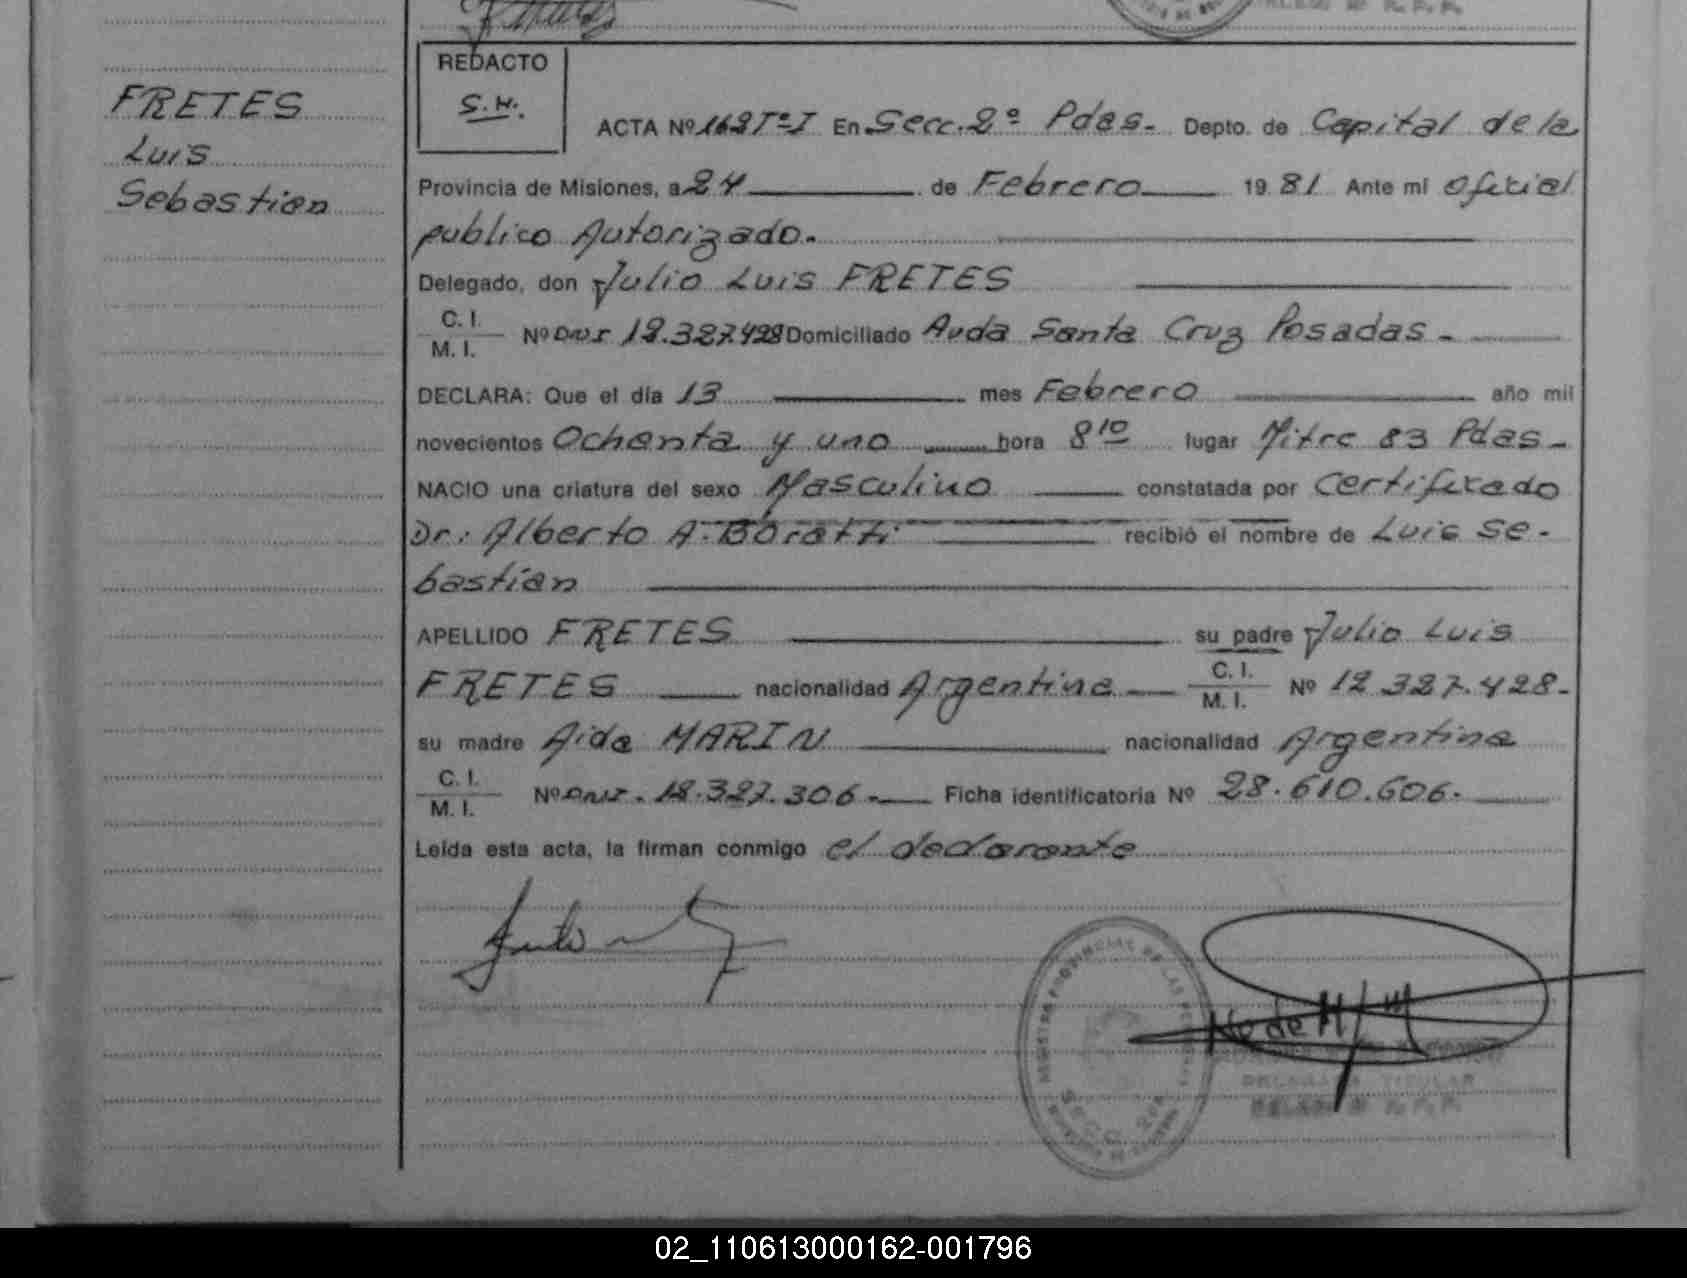 FRETES
Luis
Sebastian
REDACTO
S.H.
ACTA Nº 162 Tº I En Secc. 2º Pdas. Depto. de Capital de la
Provincia de Misiones, a 24 de Febrero 19 81 Ante mi oficial
publico Autorizado.
Delegado, don Julio Luis FRETES
C. I.
M. I. Nº DNI 12.327.428 Domiciliado Avda Santa Cruz Posadas.
DECLARA: Que el dia 13 mes Febrero año mil
novecientos Ochenta y uno hora 8 10 lugar Mitre 83 Pdas.
NACIO una criatura del sexo Masculino constatada por Certificado
Dr. Alberto A. Boratti recibió el nombre de Luis Se-
bastian
APELLIDO FRETES su padre Julio Luis
FRETES nacionalidad Argentina C. I.
M. I. Nº 12.327.428.
su madre Aida MARIN nacionalidad Argentina
C. I.
M. I. Nº DNI. 18.327.306. Ficha identificatoria Nº 28.610.606.
Leida esta acta, la firman conmigo el declarante
DELEGADA TITULAR
02_110613000162-001796